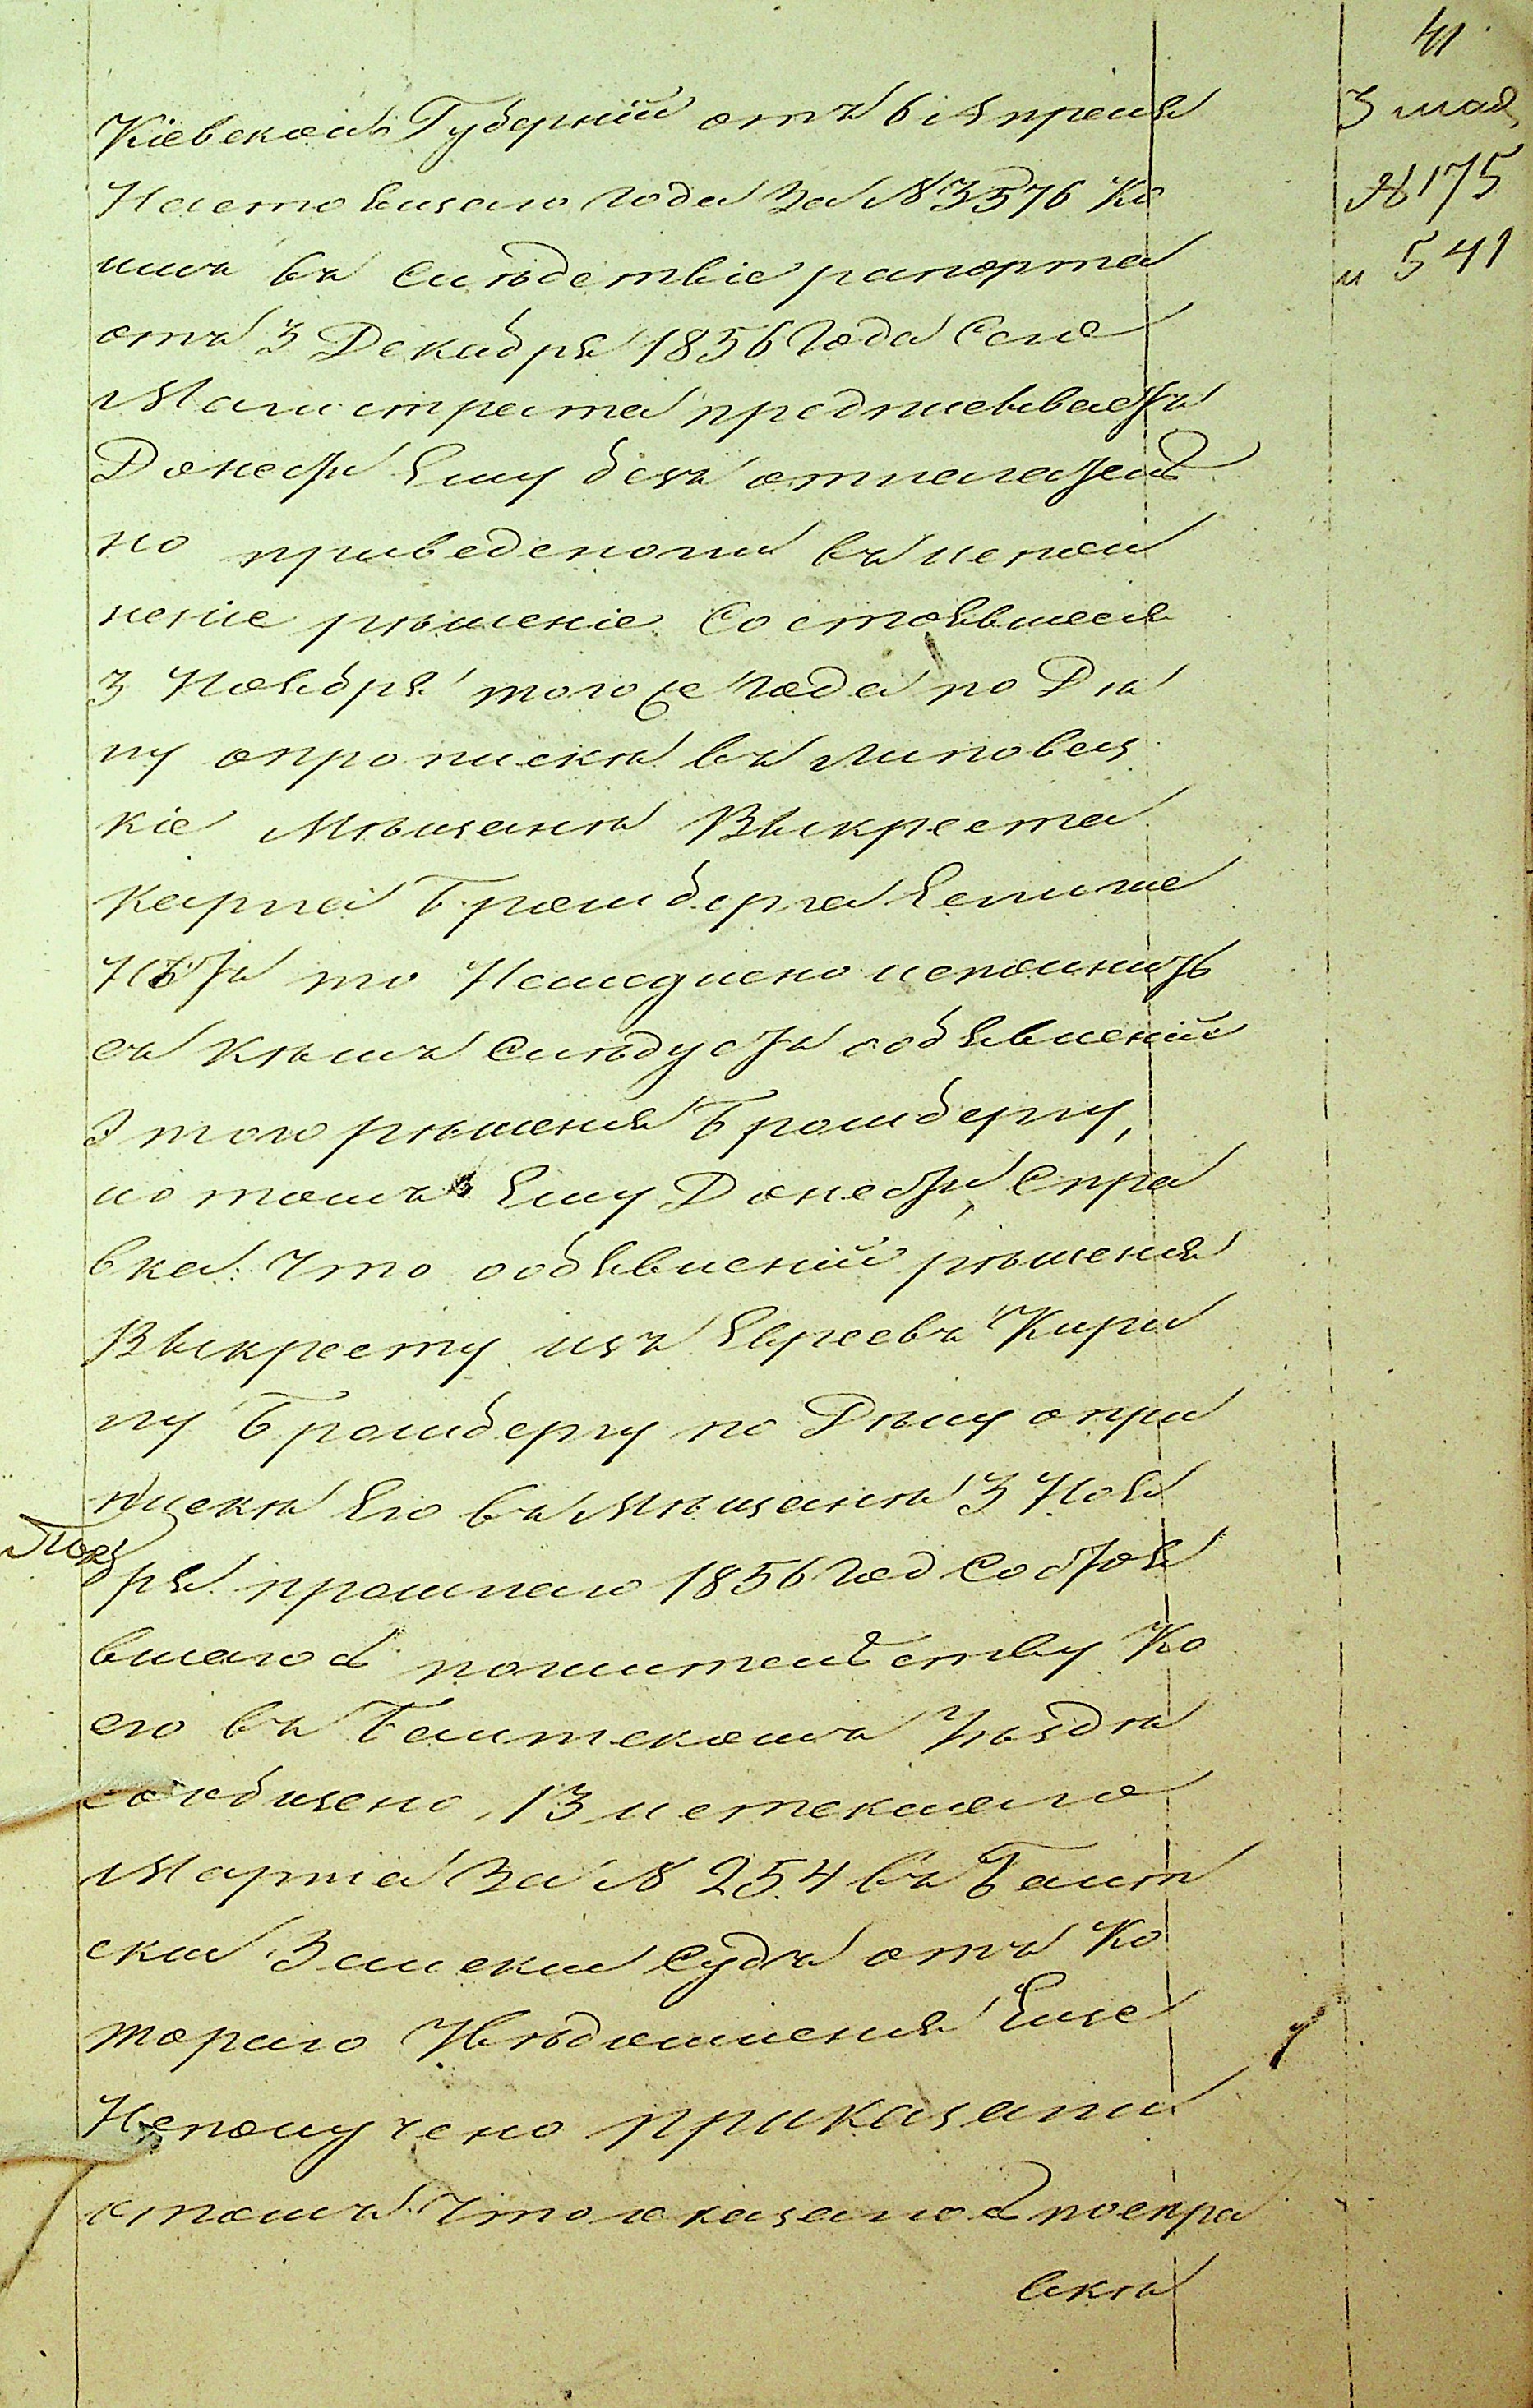 41
3 мая
№ 175
и 541
Кіевской Губерніи отъ 6 Апреля
Настоящаго года За № 3576 Ко
имъ въ следствіе рапорта
отъ 3 Декабря 1856 Года Сего
Магистрата предписываетъ
Донести Ему безъ отлагатель
но приведеноли въ испол
неніе рѣшеніе Состоявшееся
3 Ноября тогоже года по Дѣ
лу опропискѣ въ Липовец
кіе Мѣщанѣ Выкреста
Карпа Бромберга Еслиже
Нѣтъ то Немедлено исполнить
съ кѣмъ Слѣдуетъ ообявленіи
Этого рѣшенія Бромбергу,
ио томъ Ему Донести, Спра
вка: Что ообявленіи рѣшенія
Выкресту изъ Евреевъ Кири
лу Бромбергу по Дѣлу опри
пискѣ Его въ Мѣщанѣ 3 Ноя
бря прошлаго 1856 год Состоя
вшагось пожительству Ко
его въ Балтскомъ Уѣздѣ
сообщено 13 истекшаго
Марта За № 254 въ Балт
ски Земски Судъ отъ Ко
тораго Увѣдомленія Еще
Неполучено приказали
отомъ Что оказалось поспра
вкѣ